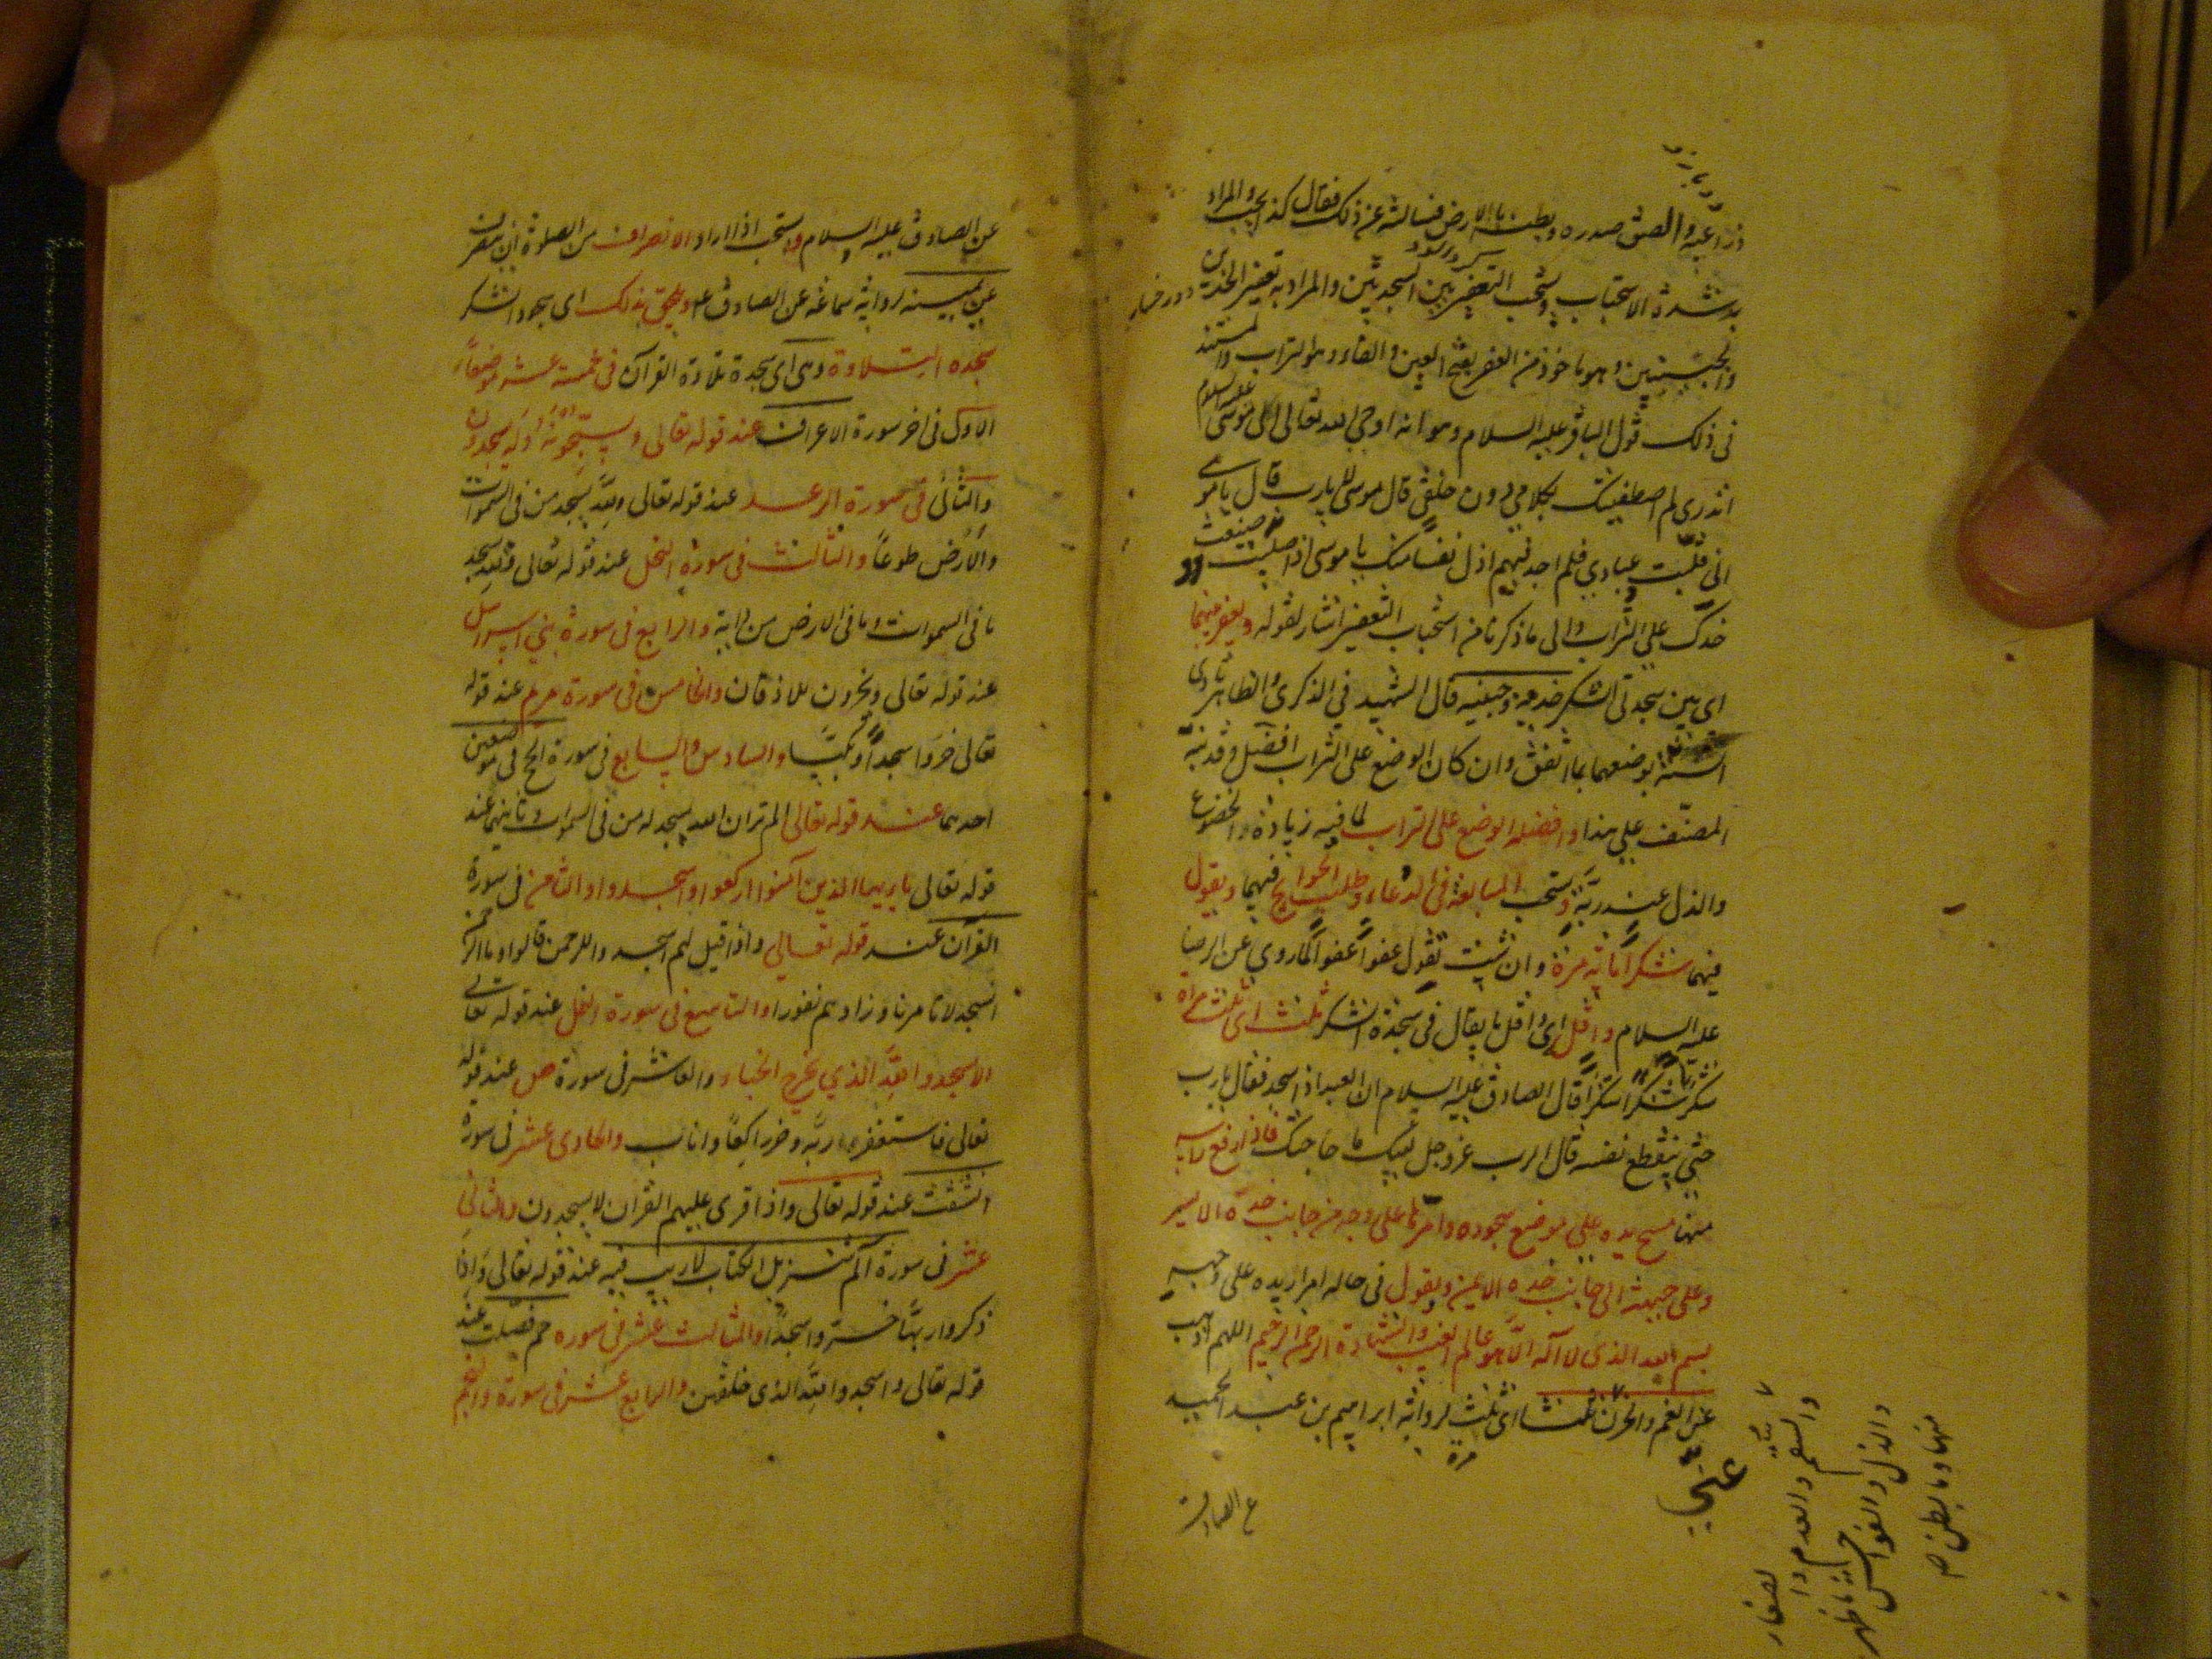 ذراعيه والصق صدره وبطنه بالارض فسالته عن ذلك فقال كذا يجب والمراد
به شدة الاستحباب ويستحب التعفير بين السجدتين والمراد به تعفير الخدين
والجبينين وهو ماخوذ من العفر بفتح العين والفاء وهو التراب والمستند
فى ذلك قول الباقر عليه السلام وهو انه اوحى الله تعالى الى موسى عليه السلام
اتدرى لم اصطفيتك بكلامي دون خلقى قال موسى لا يارب قال ياموسى
انى قلبت عبادي فلم اجد فيهم اذل نفسا منك يا موسى اذا صليت وضعت
خدك على التراب والى ما ذكرنا من استحباب التعفير اشار لقوله ويعفر بينهما
اى بين سجدتى الشكر خديه وجبينيه قال الشهيد في الذكرى والظاهر تادى
السنة بوضعهما بما اتفق وان كان الوضع على التراب افضل وقد نبه
المصنف على هذا وافضله الوضع على التراب لما فيه زيادة والخضوع
والذل عند ربه ويستحب المبالغة فى الدعاء وطلب الحوايج فيهما ويقول
فيهما شكرا مائة مرة وان شئت تقول عفواً عفواً كما روي عن الرضا
عليه السلام واقل اى واقل ما يقال فى سجدة الشكر ثلث اى ثلث مراة
شكرا شكرا شكرا قال الصادق عليه السلام ان العبد اذا سجد فقال يارب
حتى ينقطع نفسه قال الرب عز وجل لبيك ما حاجتك فاذا رفع راسه
منها مسح يده على موضع سجوده وامرها على وجهه من جانب خده الايسر
وعلى جبهته الى جانب خده الايمن ويقول فى حاله امرار يده على وجهه
بسم الله الذى لا اله الا هو عالم الغيب والشهادة الرحمن الرحيم اللهم اذهب
عنى الغم والحزن ثلثا اى ثلث لرواية ابراهيم بن عبد الحميد
مرة
عنى
والسقم والعدم وا
لصغار
والذل والفواحش
ما ظهر
منها وما بطن
عن الصادق
عن الصادق عليه السلام ويستحب اذا اراد الانصراف من الصلوة ان ينصرف
عن يمينه لرواية سماعة عن الصادق ع ويلحق بذلك اى بسجود الشكر
سجده التلاوة وهى اى سجدة تلاوة القرآن فى خمسة عشر موضعاً
الاول فى اخر سورة الاعراف عند قوله تعالى ويسبحونه وله يسجدون
والثانى فى سورة الرعد عند قوله تعالى ولله يسجد من فى السموات
والارض طوعاً والثالث فى سورة النحل عند قوله تعالى ولله يسجد
ما فى السموات وما فى الارض من دابة والرابع فى سورة بني اسرائيل
عند قوله تعالى ويخرون للاذقان والخامس فى سورة مريم عند قوله
تعالى خروا سجداً وبكيّا والسادس والسابع فى سورة الحج فى موضعين
احدهما عند قوله تعالى الم تر ان الله يسجد له من فى السموات وثانيهما عند
قوله تعالى يا ايها الذين آمنوا اركعوا واسجدوا والثامن فى سورة
الفرقان عند قوله تعالى واذا قيل لهم اسجدوا للرحمن قالوا وما الرحمن
انسجد لما تامرنا وزادهم نفورا والتاسع فى سورة النمل عند قوله تعالى
الا يسجدوا لله الذي يخرج الخباء والعاشر فى سورة ص عند قوله
تعالى فاستغفر ربه وخر راكعاً واناب والحادى عشر فى سورة
انشقت عند قوله تعالى واذا قرى عليهم القران لا يسجدون والثانى
عشر فى سورة الم تنزيل الكتاب لا ريب فيه عند قوله تعالى واذا
ذكروا بها خروا سجدا والثالث عشر فى سوره حم فصلت عند
قوله تعالى واسجدوا لله الذى خلقهن والرابع عشر فى سورة والنجم